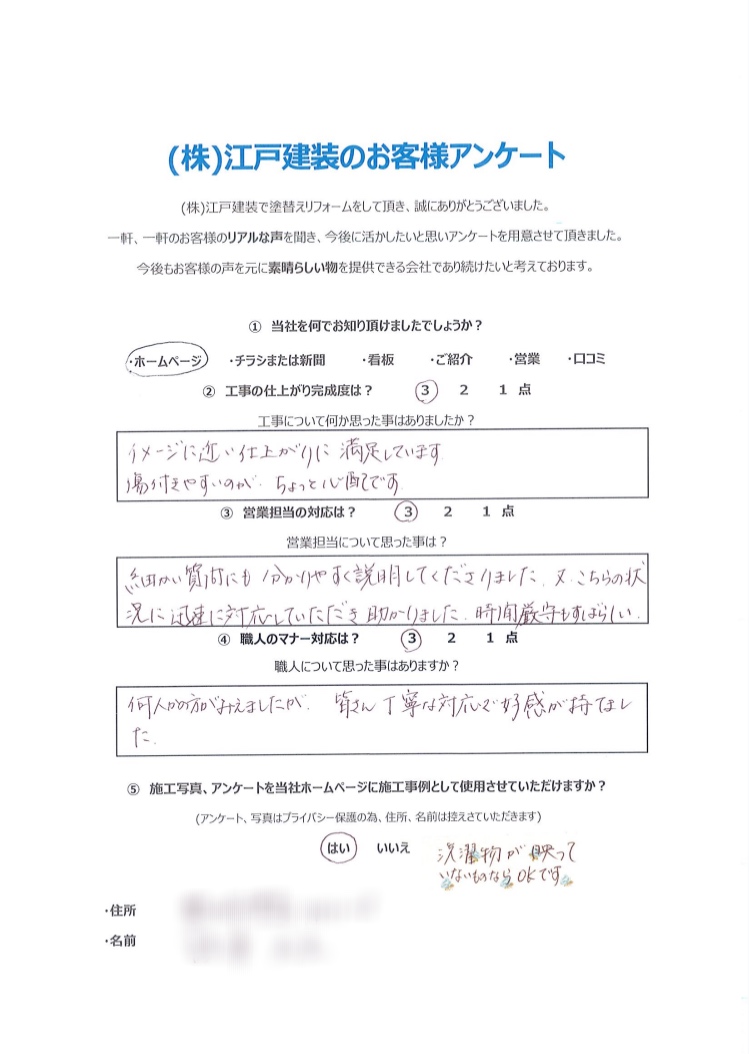 (株)江戸建装のお客様アンケート
(株)江戸建装で塗替えリフォームをして頂き、誠にありがとうございました。
一軒、一軒のお客様のリアルな声を聞き、今後に活かしたいと思いアンケートを用意させて頂きました。
今後もお客様の声を元に素晴らしい物を提供できる会社であり続けたいと考えております。
① 当社を何でお知り頂けましたでしょうか？
・ホームページ ・チラシまたは新聞 ・看板 ・ご紹介 ・営業 ・口コミ
② 工事の仕上がり完成度は？ 3 2 1 点
工事について何か思った事はありましたか？
イメージに近い仕上がりに満足しています
傷付きやすいのが、ちょっと心配です
③ 営業担当の対応は？ 3 2 1 点
営業担当について思った事は？
細かい質問にも分かりやすく説明してくださりました。又、こちらの状
況に迅速に対応していただき助かりました。時間厳守もすばらしい。
④ 職人のマナー対応は？ 3 2 1 点
職人について思った事はありますか？
何人かの方がみえましたが、皆さん丁寧な対応で好感が持てまし
た。
⑤ 施工写真、アンケートを当社ホームページに施工事例として使用させていただけますか？
(アンケート、写真はプライバシー保護の為、住所、名前は控えさていただきます)
はい いいえ 洗濯物が映って
いないものならOKです。
・住所
・名前